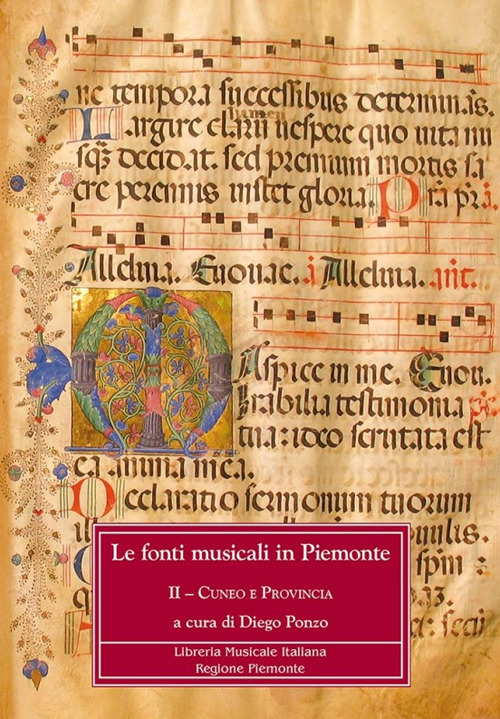 ne tempora successibus determinas.
lumen
Largire clarũ uespere quo uita nu
sqȝ decidat. sed premium mortis sa
cre perennis instet gloria.
Alleluia. Euouae. a Alleluia. ant.
Aspice in me. Euou.
Mirabilia testimonia
tua: ideo scrutata est
ea anima mea.
Declaratio sermonum tuorum
Le fonti musicali in Piemonte
II – Cuneo e Provincia
a cura di Diego Ponzo
Libreria Musicale Italiana
Regione Piemonte